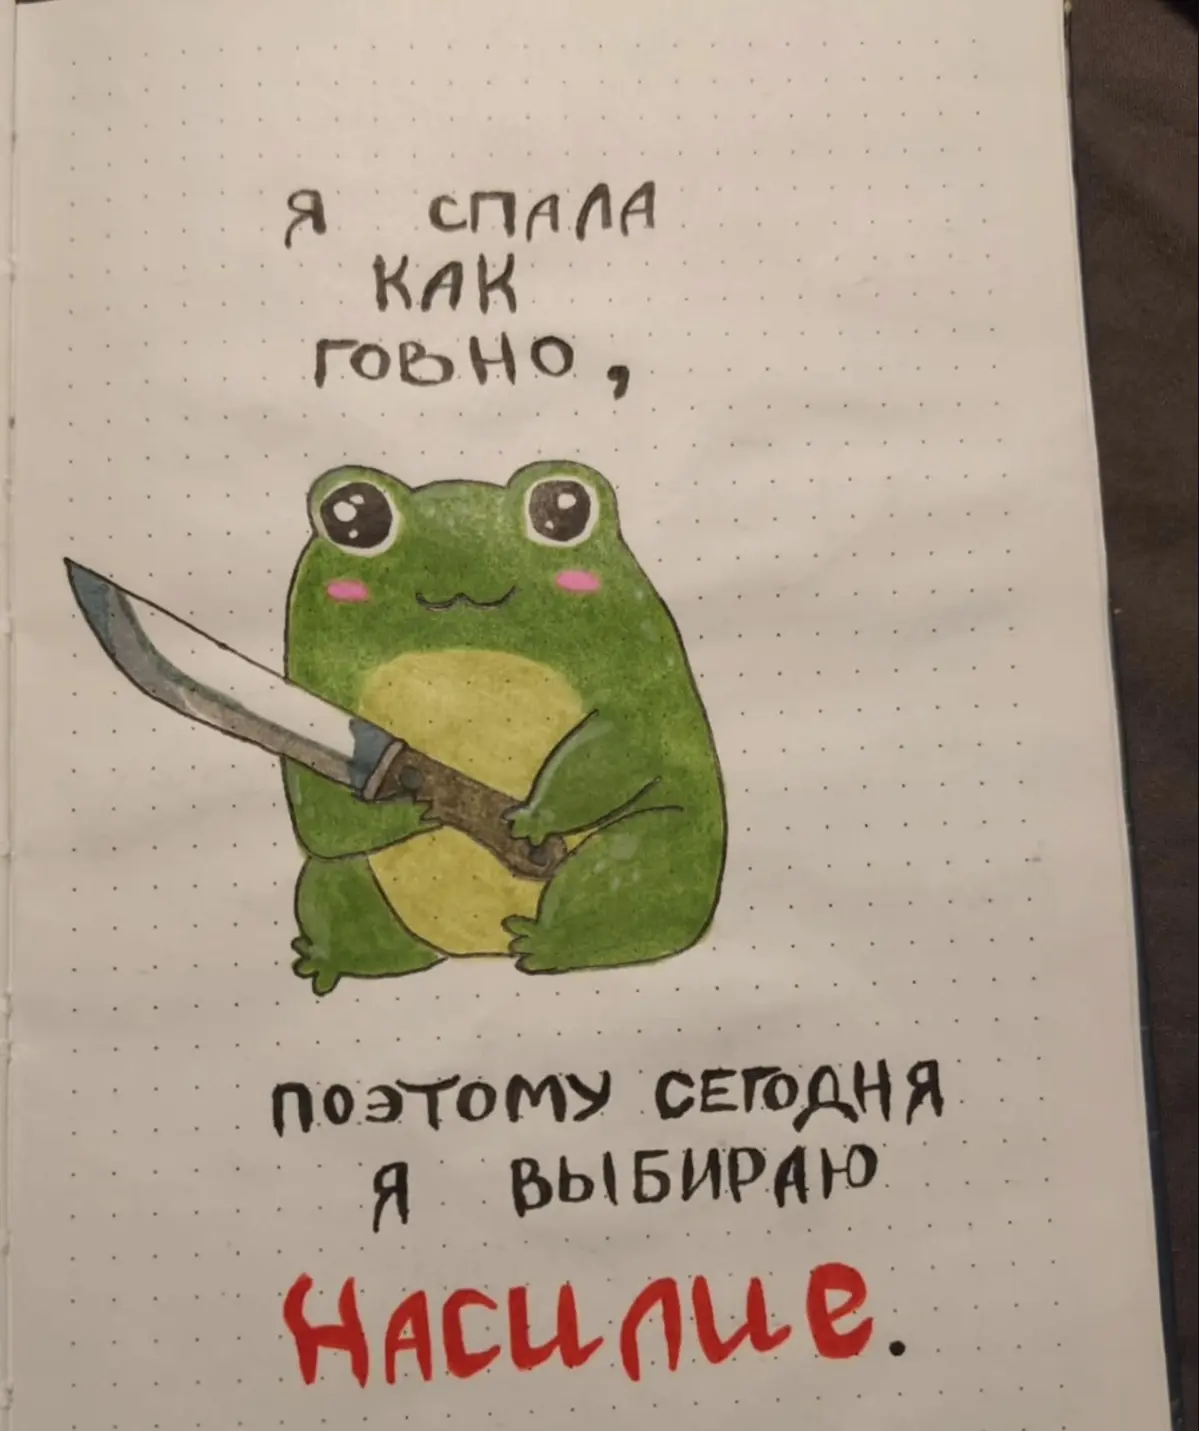 Я СПАЛА
КАК
ГОВНО,
ПОЭТОМУ СЕГОДНЯ
Я ВЫБИРАЮ
НАСИЛИЕ.